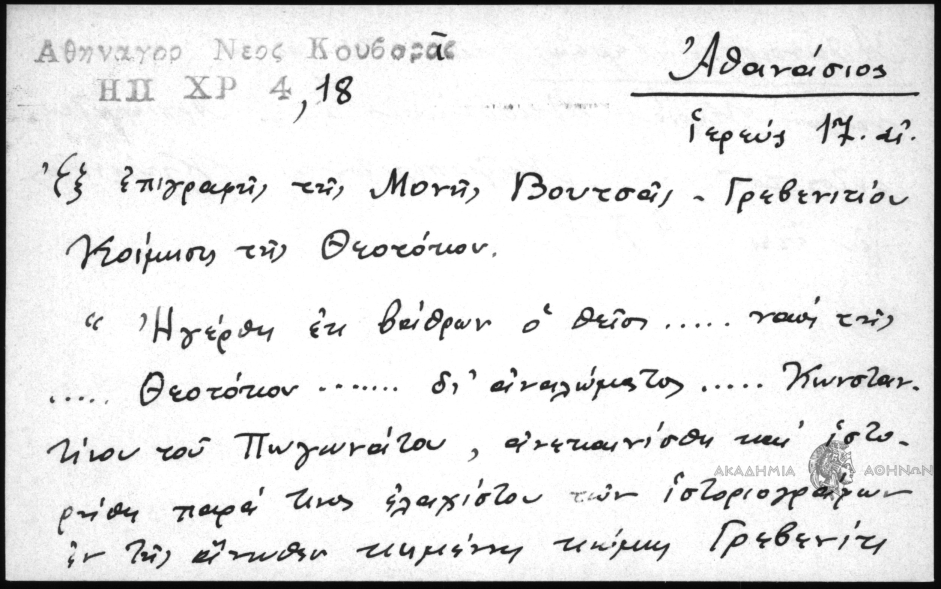 Αθηναγορ Νεος Κουβαρᾶς
ΗΠ ΧΡ 4, 18
Ἀθανάσιος
ἱερεύς 17. αἰ.
Ἐξ ἐπιγραφῆς τῆς Μονῆς Βουτσᾶς - Γρεβενιτίου
Κοίμησις τῆς Θεοτόκου.
“ Ἠγέρθη ἐκ βάθρων ὁ θεῖος ..... ναός τῆς
..... Θεοτόκου ....... δι' ἀναλώματος ..... Κωνσταν-
τίνου τοῦ Πωγωνάτου, ἀνεκαινίσθη καί ἱστο-
ρήθη παρά τινος ἐλαχίστου τῶν ἱστοριογράφων
ἐν τῆς ἄνωθεν κειμένης κώμης Γρεβενίτι
ΑΚΑΔΗΜΙΑ ΑΘΗΝΩΝ